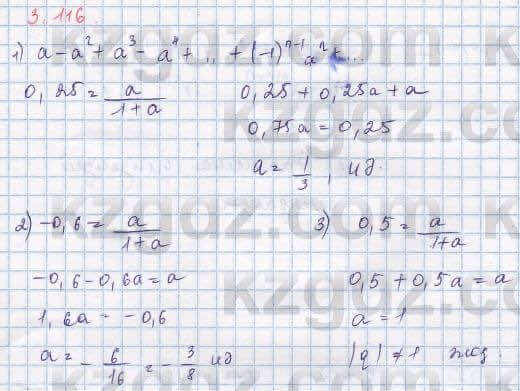 3.116.
1) a - a² + a³ - a⁴ + ... + (-1)ⁿ⁻¹ aⁿ + ...
0,25 = a/(1+a)
0,25 + 0,25a + a
0,75a = 0,25
a = 1/3, ид.
2) -0,6 = a/(1+a)
-0,6 - 0,6a = a
1,6a = -0,6
a = - 6/16 = - 3/8 ид
3) 0,5 = a/(1+a)
0,5 + 0,5a = a
a = 1
|q| ≠ 1
kzgdz.com
kzgdz.com
kzgdz.com